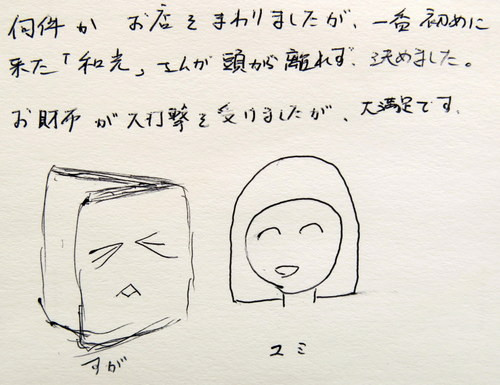 何件か お店をまわりましたが、一番初めに
来た「和光」さんが頭から離れず、決めました。
お財布が大打撃を受けましたが、大満足です。
すが
ユミ